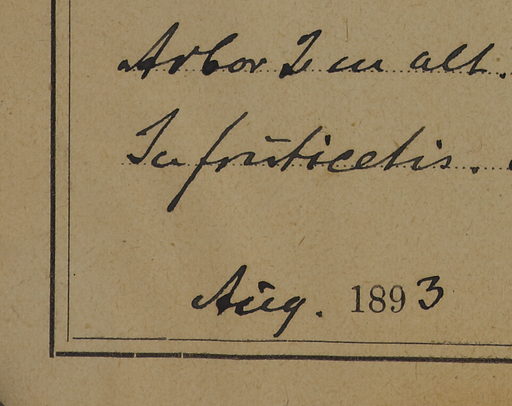 Arbor 2 m alt.
In fruticetis.
Aug. 1893